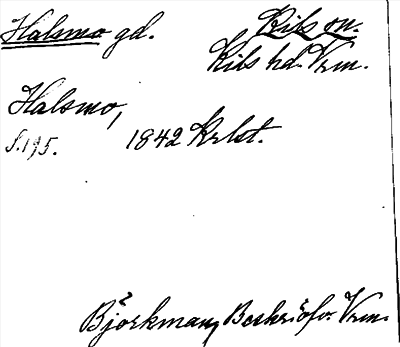 Halsmo gd. Kils sn.
Kils hd. Vrm.
Halsmo,
S. 195. 1842 Krlst.
Björkman, Beskr. öfv. Vrm.